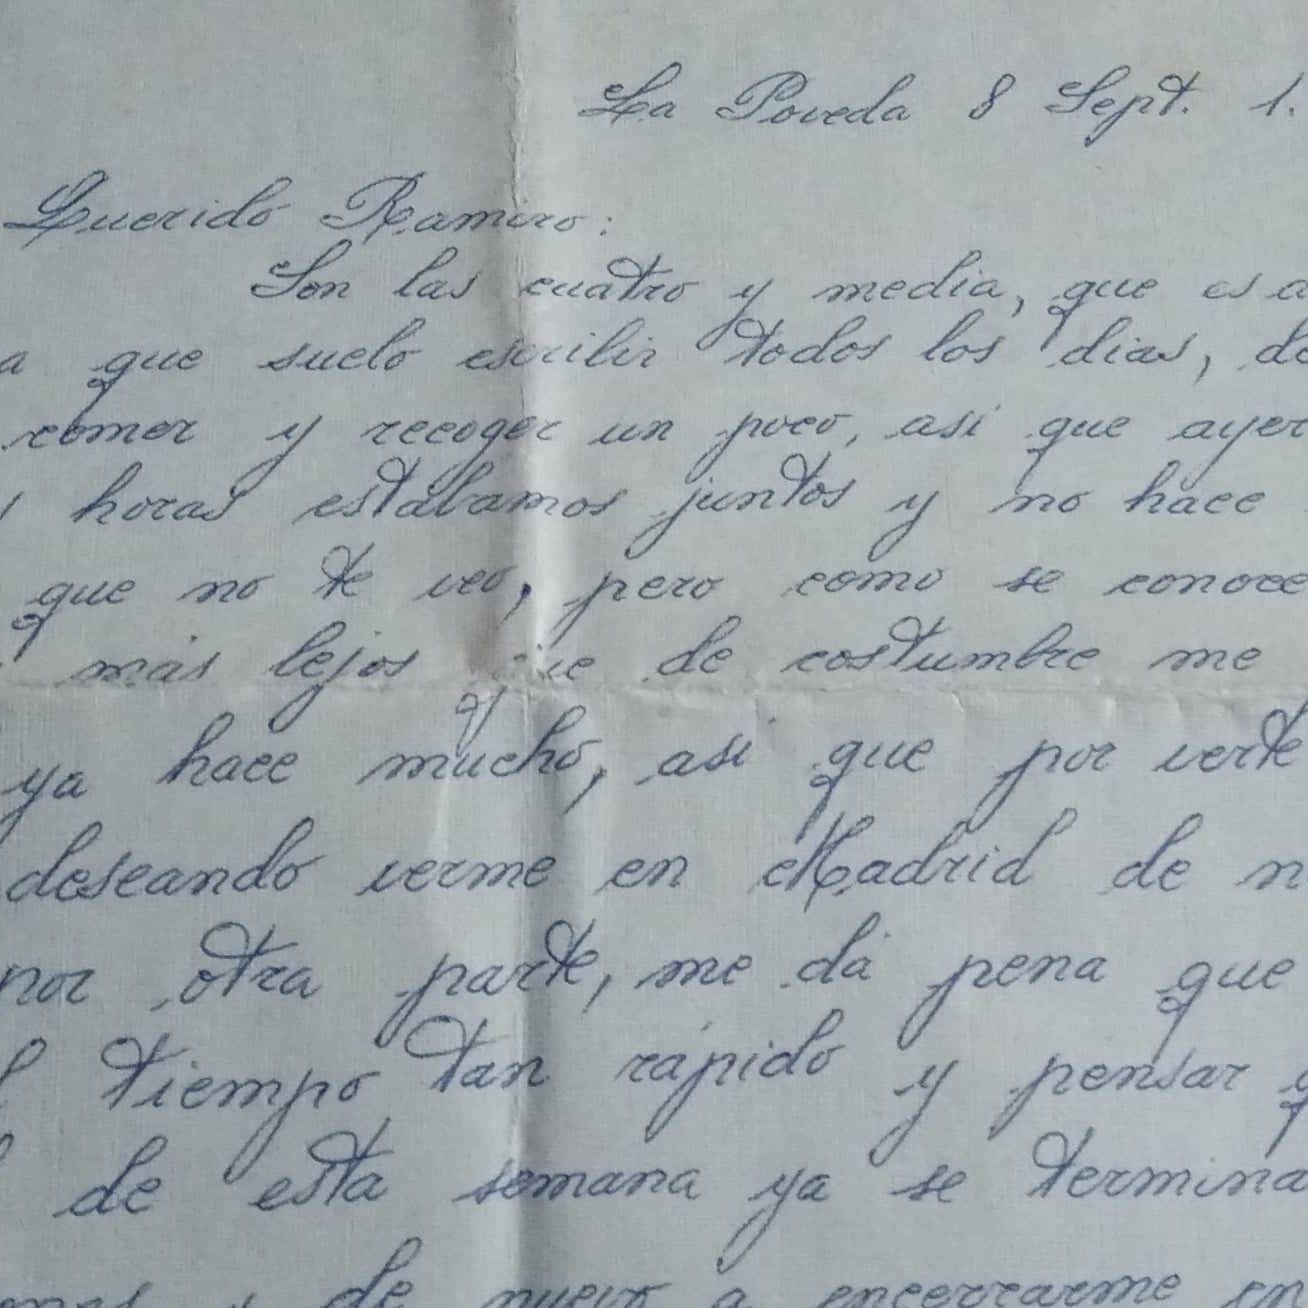 La Poveda 8 Sept. 1.
Querido Ramiro:
Son las cuatro y media, que es a
a que suelo escribir todos los dias, de
comer y recoger un poco, asi que ayer
s horas estabamos juntos y no hace
que no te veo, pero como se conoce
más lejos que de costumbre me
ya hace mucho, asi que por verte
deseando verme en Madrid de n
por otra parte, me dá pena que
l tiempo tan rápido y pensar q
l de esta semana ya se termina
y de nuevo a encerrarme en